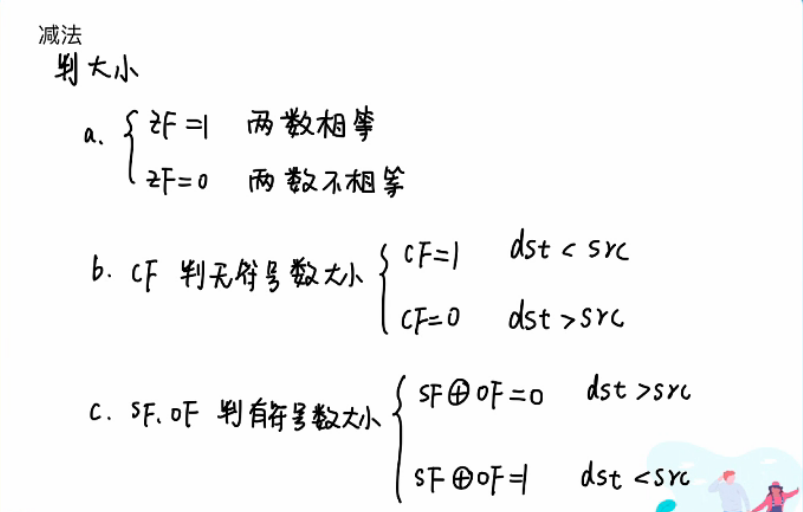 减法
判大小
a. { ZF=1 两数相等
ZF=0 两数不相等
b. CF 判无符号数大小 { CF=1 dst < src
CF=0 dst > src
c. SF、OF 判有符号数大小 { SF⊕OF=0 dst > src
SF⊕OF=1 dst < src